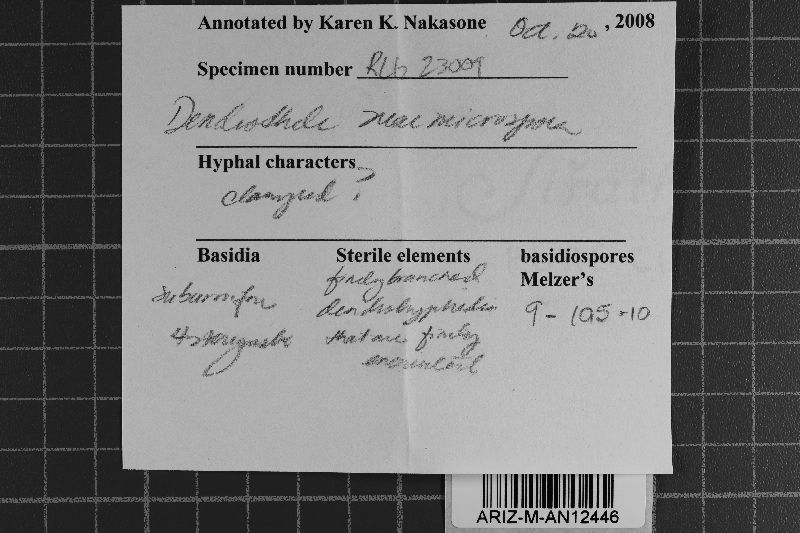 Annotated by Karen K. Nakasone Oct. 20, 2008
Specimen number RLG 23009
Dendrothele near microspora
Hyphal characters
clamped ?
Basidia
suburniform
4 sterigmate
Sterile elements
finely branched
dendrohyphidia
that are finely
encrusted
basidiospores
Melzer's
9 - 10.5 - 10
ARIZ-M-AN12446